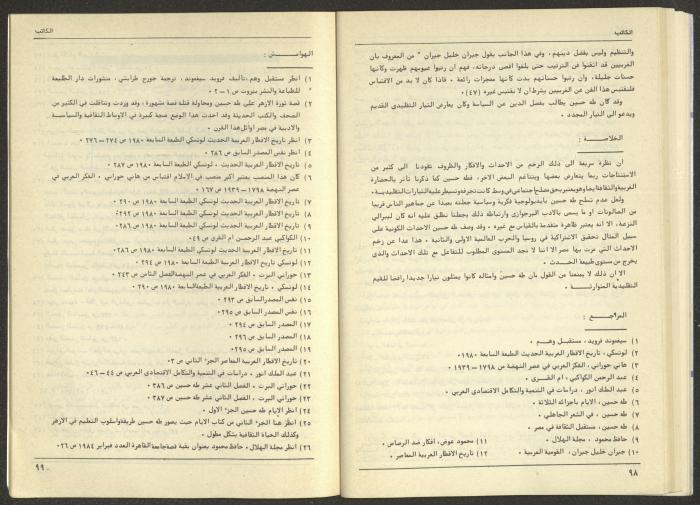 الكاتب
والتنظيم وليس بفضل دينهم ، وفي هذا الجانب يقول جبران خليل جبران " من المعروف بان
الغربيين قد اتقنوا فن الترتيب حتى بلغوا اقصى درجاته، فهم ان رتبوا عيوبهم ظهرت وكأنها
حسنات جليلة، وان رتبوا حسناتهم بدت كأنها معجزات رائعة ، فاذا كان لا بد من الاقتباس
فلنقتبس هذا الفن عن الغربيين بشرط ان لا نقتبس غيره (٤٧) ٠
وقد كان طه حسين يطالب بفصل الدين عن السياسة وكان يعارض التيار التقليدي القديم
ويدعو الى التيار المجدد ٠
الخلاصة :
ان نظرة سريعة الى ذلك الزخم من الاحداث والافكار والظروف تقودنا الى كثير من
الاستنتاجات ربما يتعارض بعضها ويتناغم البعض الاخر، فطه حسين كما ذكرنا تأثر بالحضارة
الغربية والثقافة وهو يعتبر بحق مصلح اجتماعي في وسط كانت تجرفه وتسيطر عليه التيارات التقليدية ٠
ولعل عدم تسلح طه حسين بايديولوجية فكرية وسياسية جعلته بعيدا عن جماهير الناس قريبا
من الصالونات او ما يسمى بالادب البرجوازي وارتباطه ذلك يجعلنا نطلق عليه انه كان ليبرالي
النزعة، الا انه يعتبر ظاهرة متقدمة بالقياس مع غيره ٠ وقد وصف طه حسين الاحداث الكونية على
سبيل المثال تحقيق الاشتراكية في روسيا والحرب العالمية الاولى والثانية ٠ هذا عدا عن زخم
الاحداث التي مرت بها مصر الا اننا لا نجد المستوى المطلوب للتفاعل مع تلك الاحداث والذي
يخرج من مستوى طبيعة الحدث ٠
الا ان ذلك لا يمنعنا من القول بان طه حسين وامثاله كانوا يمثلون تيارا جديدا رافضا للقيم
التقليدية المتوارثة ٠
المراجع :
١) سيغموند فرويد، مستقبل وهم ٠
٢) لوتسكي ، تاريخ الاقطار العربية الحديث الطبعة السابعة ١٩٨٠
٣) هاني حوراني، الفكر العربي في عصر النهضة من ١٧٩٨ – ١٩٣٩
٤) عبد الرحمن الكواكبي ، ام القرى ٠
٥) عبد الملك انور ، دراسات في التنمية والتكامل الاقتصادي العربي ٠
٦) طه حسين، الايام باجزائه الثلاثة ٠
٧) طه حسين ، في الشعر الجاهلي ٠
٨) طه حسين، مستقبل الثقافة في مصر ٠
٩) حافظ محمود ، مجلة الهلال ٠
١٠) جبران خليل جبران، القومية العربية ٠
١١) محمود عوض، افكار ضد الرصاص ٠
١٢) تاريخ الاقطار العربية المعاصر ٠
٩٨
الكاتب
الهوامش :
١) انظر مستقبل وهم ،تأليف فرويد سيغموند، ترجمة جورج طرابيشي ، منشورات دار الطليعة
للطباعة والنشر بيروت ص ١ – ٢ ٠
٢) قصة ثورة الازهر على طه حسين ومحاولة قتله قصة مشهورة ، وقد وردت وتناقلت في الكثير من
الصحف والكتب الحديثة وقد احدث هذا الوضع ضجة كبيرة في الاوساط الثقافية والسياسية
والادبية في مصر اوائل هذا القرن ٠
٣) انظر تاريخ الاقطار العربية الحديث لوتسكي الطبعة السابعة ١٩٨٠ ص ٢٧٤ – ٢٧٦ ٠
٤) انظر نفس المصدر السابق ص ٢٨٦ ٠
٥) تاريخ الاقطار العربية الحديث ، لوتسكي الطبعة السابعة ١٩٨٠ ص ٢٨٧ ٠
٦) كان هذا المنصب يعتبر اكبر منصب في الاسلام اقتباس من هاني حوراني ، الفكر العربي في
عصر النهضة ١٧٩٨ – ١٩٣٩ ص ١٦٧ ٠
٧) تاريخ الاقطار العربية الحديث لوتسكي الطبعة السابعة ١٩٨٠ ص ٢٩٠ ٠
٨) تاريخ الاقطار العربية الحديث لوتسكي الطبعة السابعة ١٩٨٠ ص ٢٩٢
٩) تاريخ الاقطار العربية الحديث لوتسكي الطبعة السابعة ١٩٨٠ ص ٢٨٦ ٠
١٠) الكواكبي عبد الرحمن ام القرى ص ٤٩ ٠
١١) تاريخ الاقطار العربية الحديث لوتسكي الطبعة السابعة ١٩٨٠ ص ٢٨٦ ٠
١٢) لوتسكي تاريخ الاقطار العربية الحديث الطبعة السابعة ١٩٨٠ ص ٢٩٤ ٠
١٣) حوراني البرت ، الفكر العربي في عصر النهضة الفصل الثامن ص ٢٤٣ ٠
١٤) لوتسكي ، تاريخ الاقطار العربية الطبعة السابعة ١٩٨٠ ص ٢٩٠ ٠
١٥) نفس المصدر السابق ص ٢٩٣ ٠
١٦) نفس المصدر السابق ص ٢٩٥ ٠
١٧) المصدر السابق ص ٢٩٤ ٠
١٨) المصدر السابق ص ٢٩٦ ٠
١٩) المصدر السابق ص ٢٩٥ ٠
٢٠) تاريخ الاقطار العربية المعاصر الجزء الثاني ص ٣ ٠
٢١) عبد الملك انور ، دراسات في التنمية والتكامل الاقتصادي العربي ص ٤٤ – ٤٦ ٠
٢٢) حوراني البرت ، الفصل الثاني عشر طه حسين ص ٣٨٦ ٠
٢٣) حوراني البرت ، الفصل الثاني عشر طه حسين ص ٣٨٧ ٠
٢٤) انظر الايام طه حسين الجزء الاول ٠
٢٥) انظر هنا الجزء الثاني من كتاب الايام حيث يصور طه حسين طريقة واسلوب التعليم في الازهر
وكذلك الحياة الثقافية بشكل مطول ٠
٢٦) انظر مجلة الهلال ، حافظ محمود بعنوان بقية قصة جامعة القاهرة العدد فبراير ١٩٨٤ ص ٣٦ ٠
٩٩